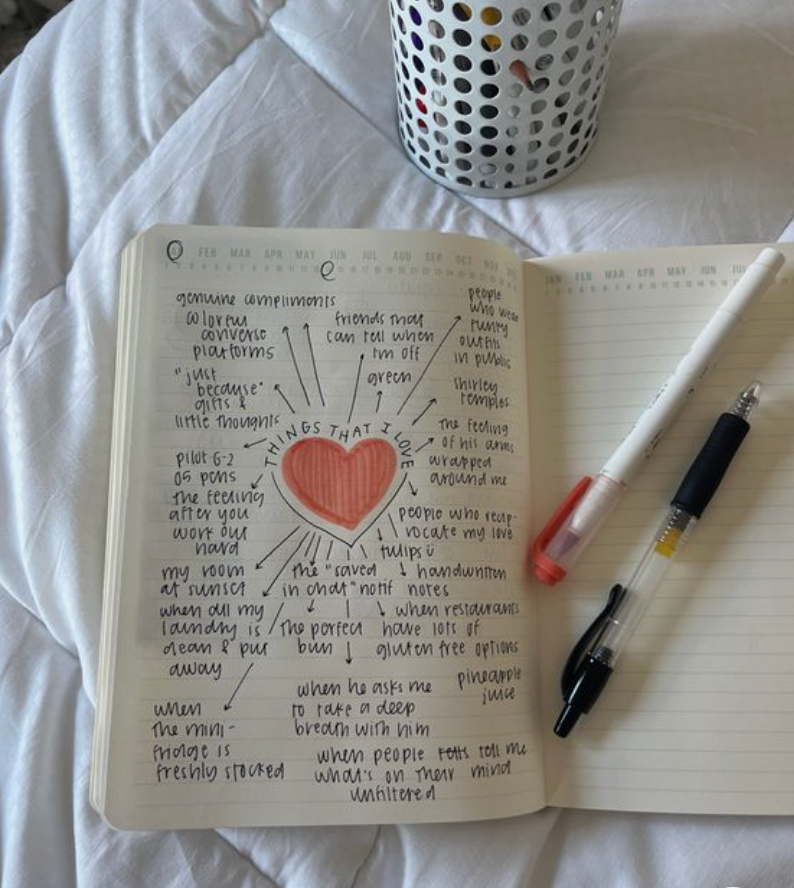 FEB MAR APR MAY JUN JUL AUG SEP OCT NOV
JAN FEB MAR APR MAY JUN
THINGS THAT I LOVE
genuine compliments
colorful
converse
platforms
"just
because"
gifts &
little thoughts
pilot G-2
05 pens
the feeling
after you
work out
hard
my room
at sunset
when all my
laundry is
clean & put
away
when
the mini-
fridge is
freshly stocked
friends that
can tell when
i'm off
green
people
who wear
funky
outfits
in public
shirley
temples
the feeling
of his arms
wrapped
around me
people who recip-
rocate my love
tulips ü
the "saved
in chat" notif
handwritten
notes
the perfect
bun
when restaurants
have lots of
gluten free options
pineapple
juice
when he asks me
to take a deep
breath with him
when people tells tell me
what's on their mind
unfiltered